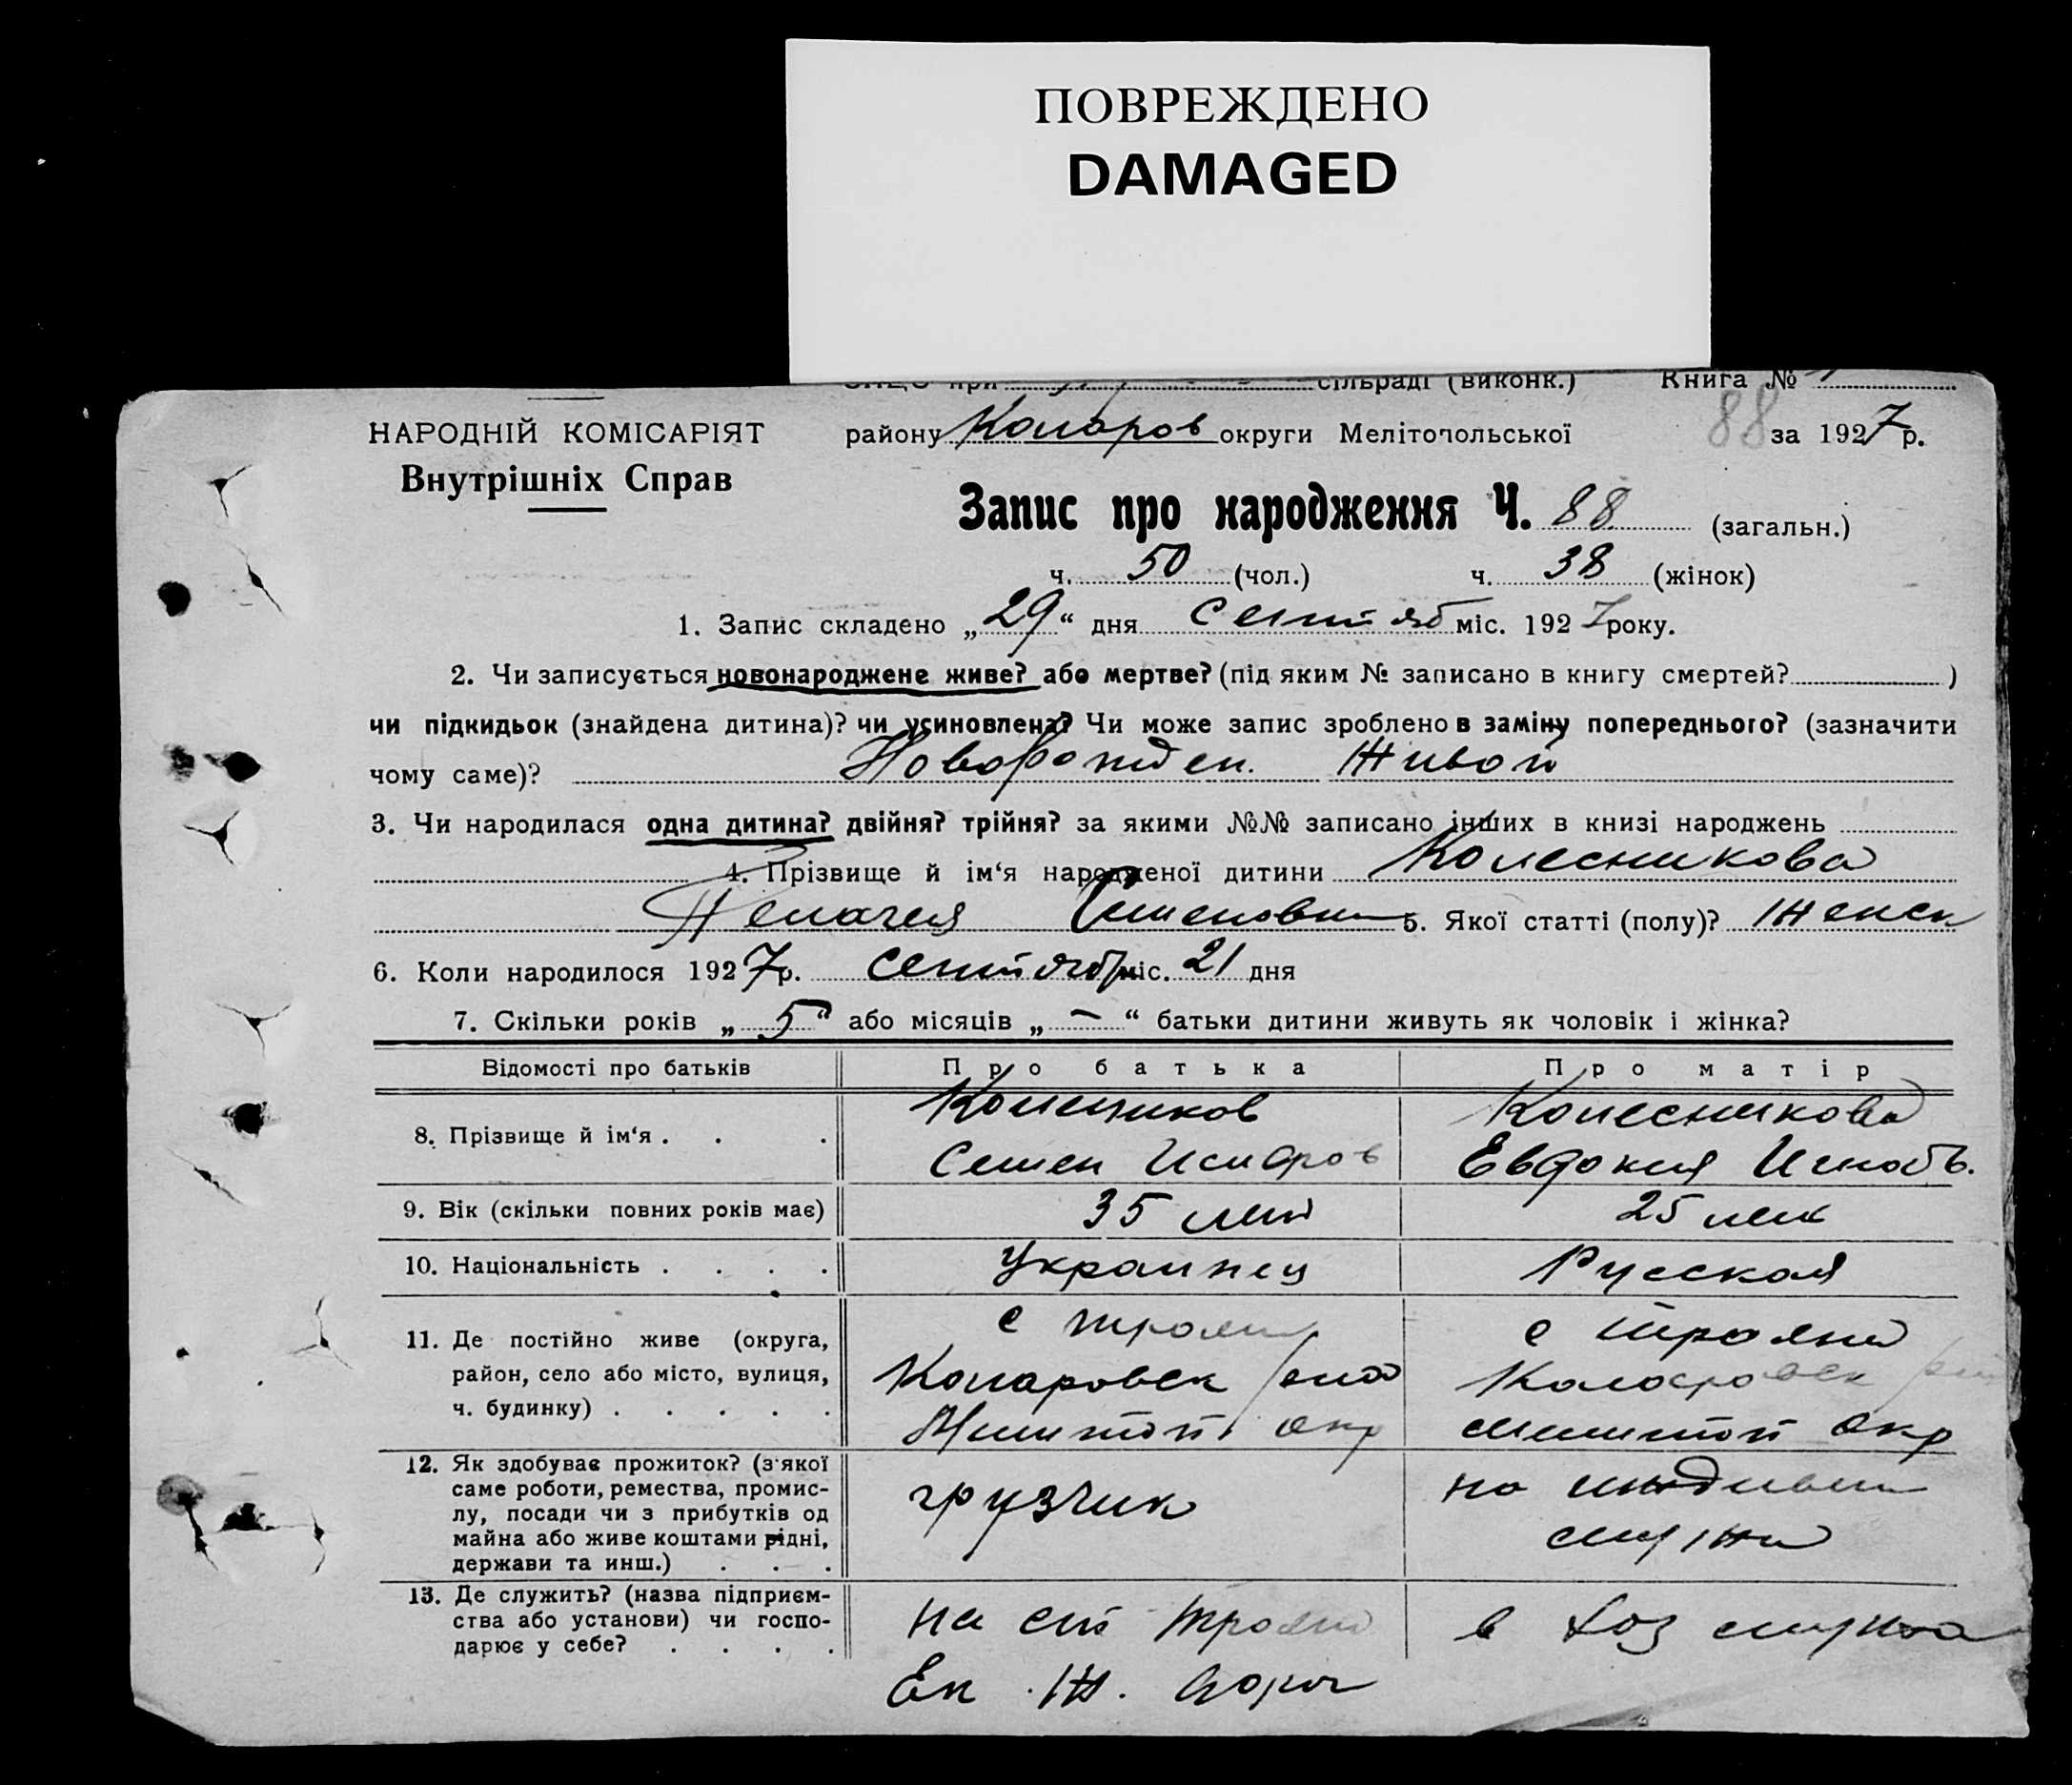 ПОВРЕЖДЕНО
DAMAGED
сільраді (виконк.) Книга №
НАРОДНІЙ КОМІСАРІЯТ району Комаров округи Мелітопольської 88 за 1927 р.
Внутрішніх Справ
Запис про народження Ч. 88 (загальн.)
ч. 50 (чол.) ч. 38 (жінок)
1. Запис складено „29“ дня Сентяб міс. 1927 року.
2. Чи записується новонароджене живе? або мертве? (під яким № записано в книгу смертей? )
чи підкидьок (знайдена дитина)? чи усиновлена? Чи може запис зроблено в заміну попереднього? (зазначити
чому саме)? Новорожден. Живой
3. Чи народилася одна дитина? двійня? трійня? за якими №№ записано інших в книзі народжень
4. Прізвище й ім‘я народженої дитини Колесникова
Пелагея Семеновна 5. Якої статті (полу)? Женск
6. Коли народилося 1927 р. Сентябр міс. 21 дня
7. Скільки років „5“ або місяців „—“ батьки дитини живуть як чоловік і жінка?
Відомості про батьків Про батька Про матір
Колесников Колесникова
8. Прізвище й ім‘я . . .
Семен Исидров Евдокия Игнатъ.
9. Вік (скільки повних років має) 35 лет 25 лет
10. Національність . . . . Украинец Русская
с Трояны с Трояны
11. Де постійно живе (округа,
район, село або місто, вулиця,
ч. будинку) . . . . .
Мелитоп окр Мелитоп окр
12. Як здобуває прожиток? (з якої
саме роботи, ремества, промис-
лу, посади чи з прибутків од
майна або живе коштами рідні,
держави та инш.) . . .
грузчик на иждивен
мужа
13. Де служить? (назва підприєм-
ства або установи) чи госпо-
дарює у себе? . . . .
на ст Трояны в хоз мужа
Ек . Ж. дорог